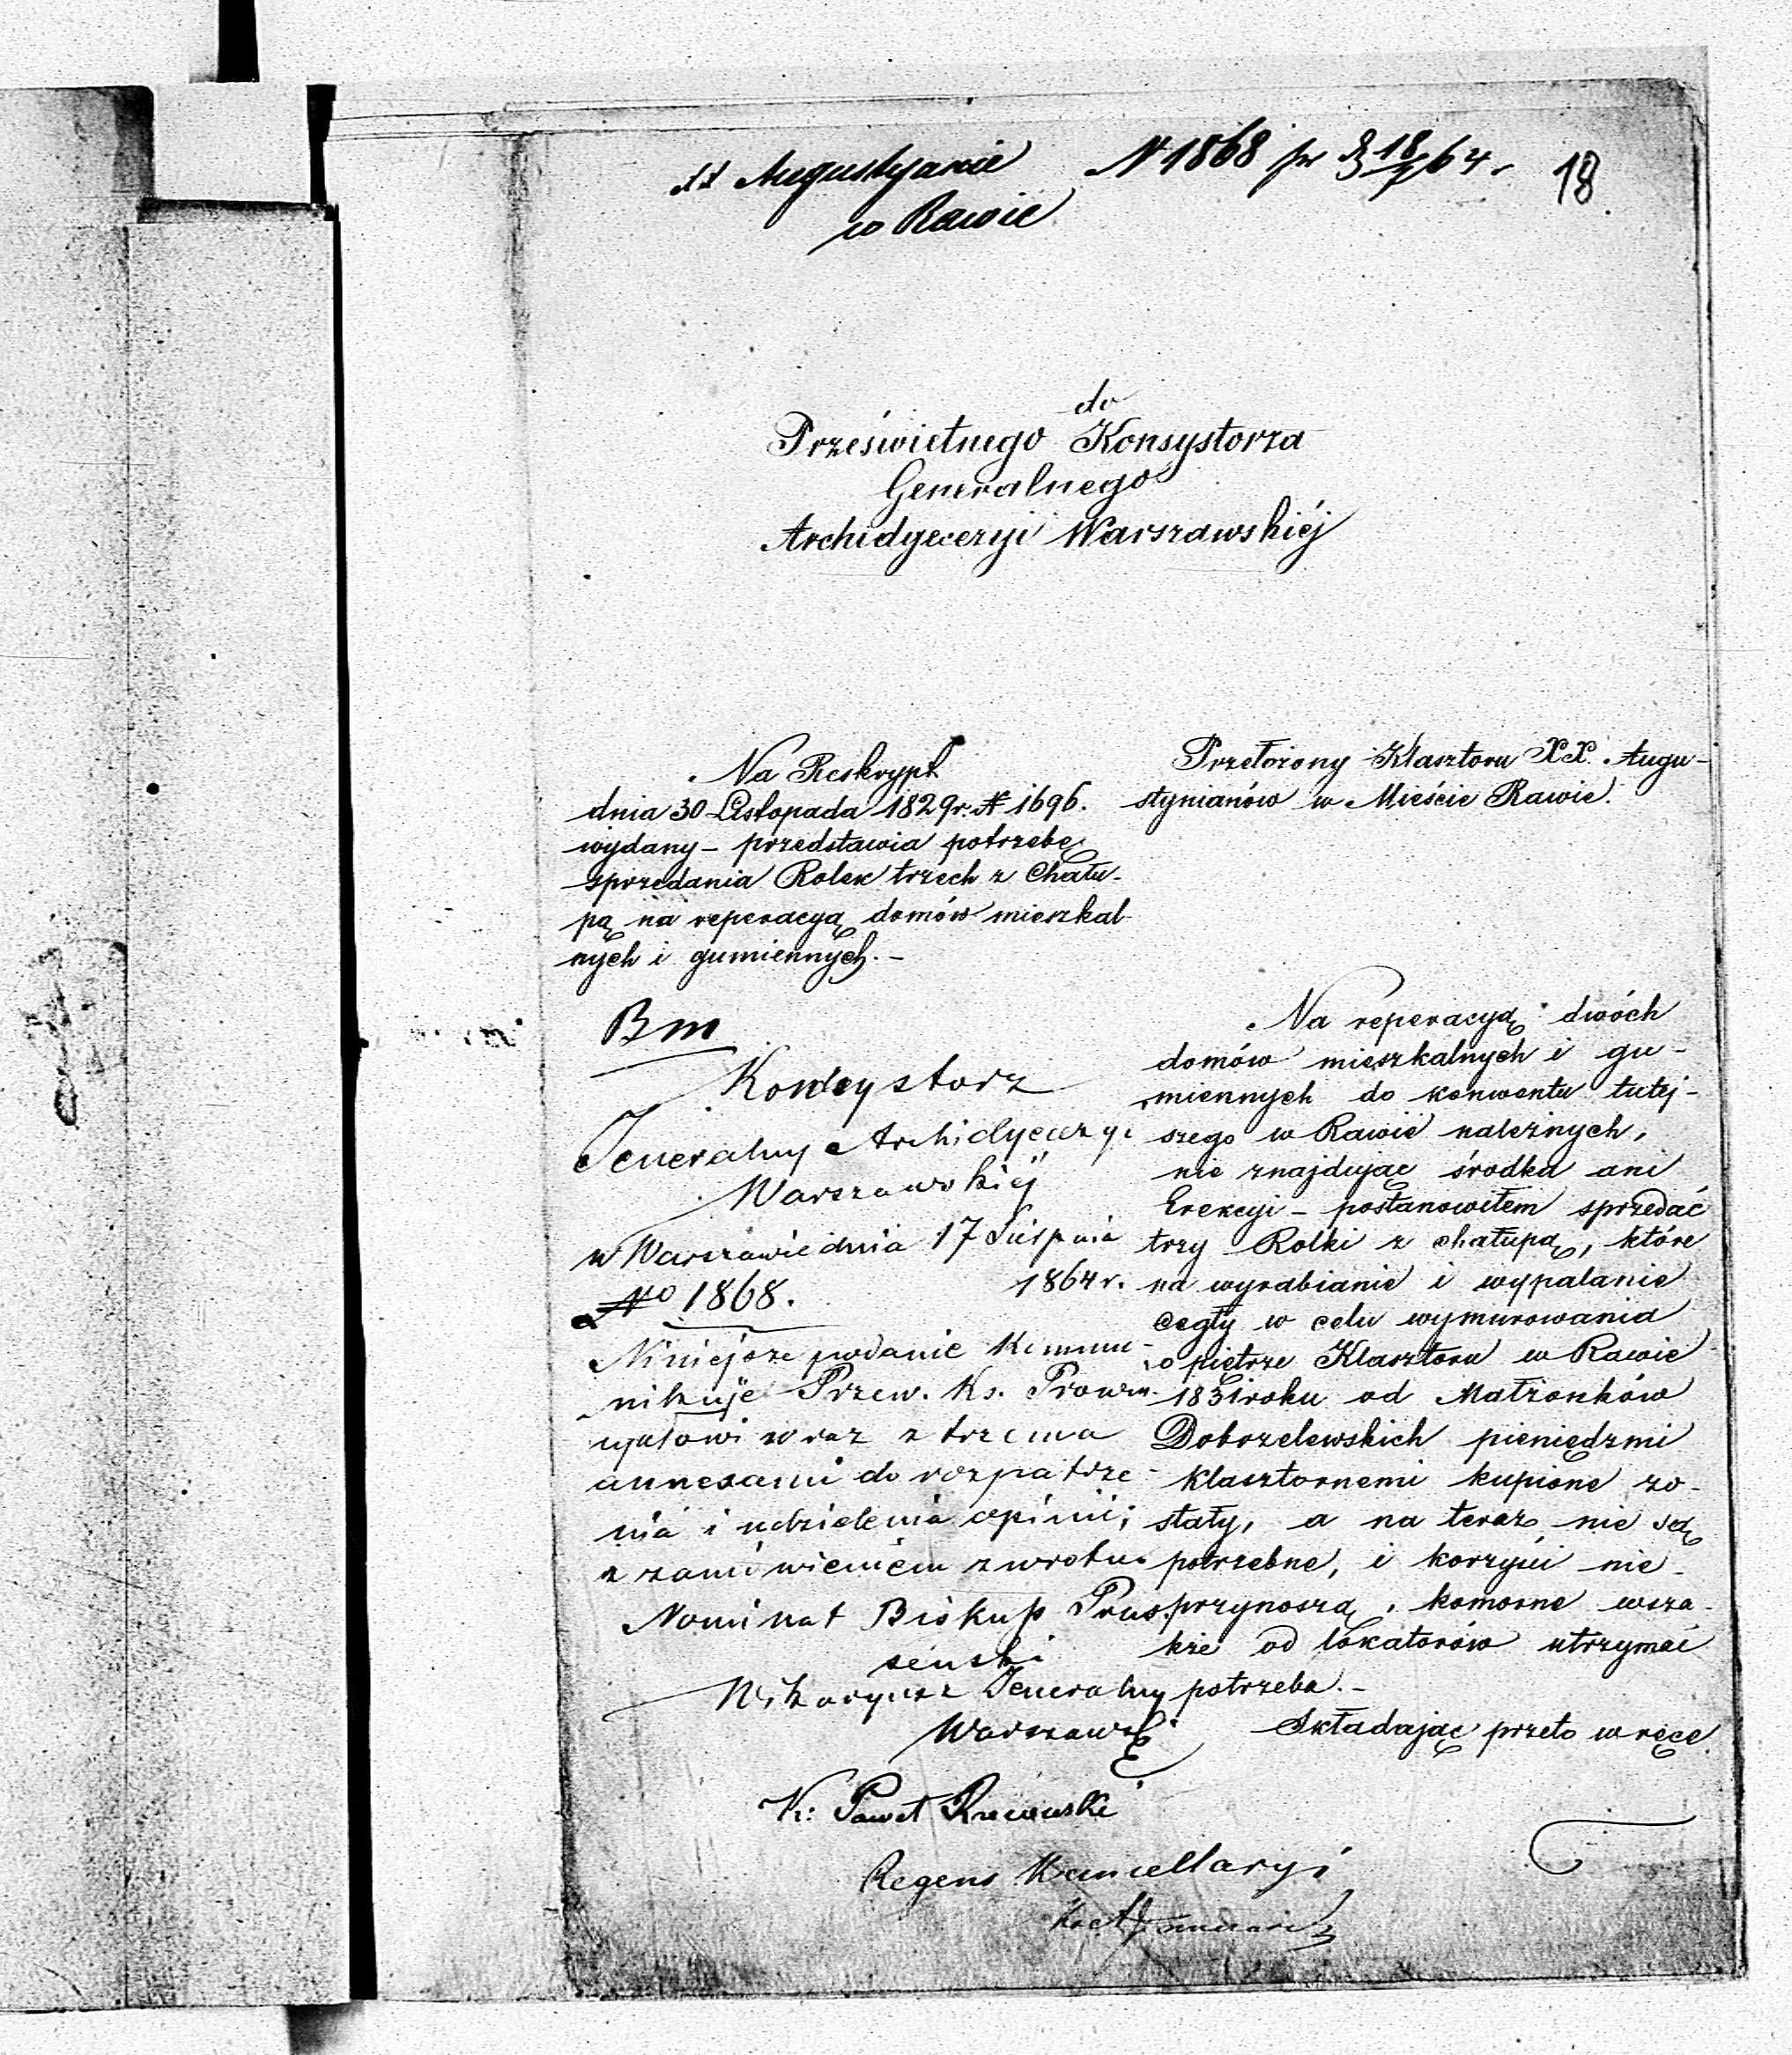 XX Augustyanie N 1868 pr d 18/7 64 r 18
w Rawie
do
Prześwietnego Konsystorza
Generalnego
Archidyecezyi Warszawskiéj
Na Reskrypt
dnia 30 Listopada 1829r. N 1696.
wydany – przedstawia potrzebę
sprzedania Rolek trzech z Chału-
pą na reperacyą domów mieszkal-
nych i gumiennych. –
Przełożony Klasztoru XX. Augu-
stynianów w Mieście Rawie.
Bm
Konsystorz
Jeneralny Archidyecezyi
Warszawskiéj
w Warszawie dnia 17 Sierpnia
1864 r.
No 1868.
Niniejsze podanie kommu-
nikuje Przew. Ks. Prowin-
cyałowi wraz z trzema
annexami do rozpatrze-
nia i udzielenia opinii;
z zamówieniem zwrotu.
Nominat Biskup Prus.
seński
Wikaryusz Jeneralny
Warszawski
K: Paweł Rzewuski
Regens Kancellaryi
Na reperacyą dwóch
domów mieszkalnych i gu-
miennych do konwentu tutej-
szego w Rawie należnych,
nie znajdując środka ani
Erekcyi – postanowiłem sprzedać
trzy Rolki z chałupą, które
na wyrabianie i wypalanie
cegły w celu wymurowania
o piętrze Klasztoru w Rawie
1831 roku od Małżonków
Dobrzelewskich pieniędzmi
klasztornemi kupione zo-
stały, a na teraz nie są
potrzebne, i korzyści nie
przynoszą, komorne wsza-
kże od lokatorów utrzymać
potrzeba. –
Składając przeto w ręce